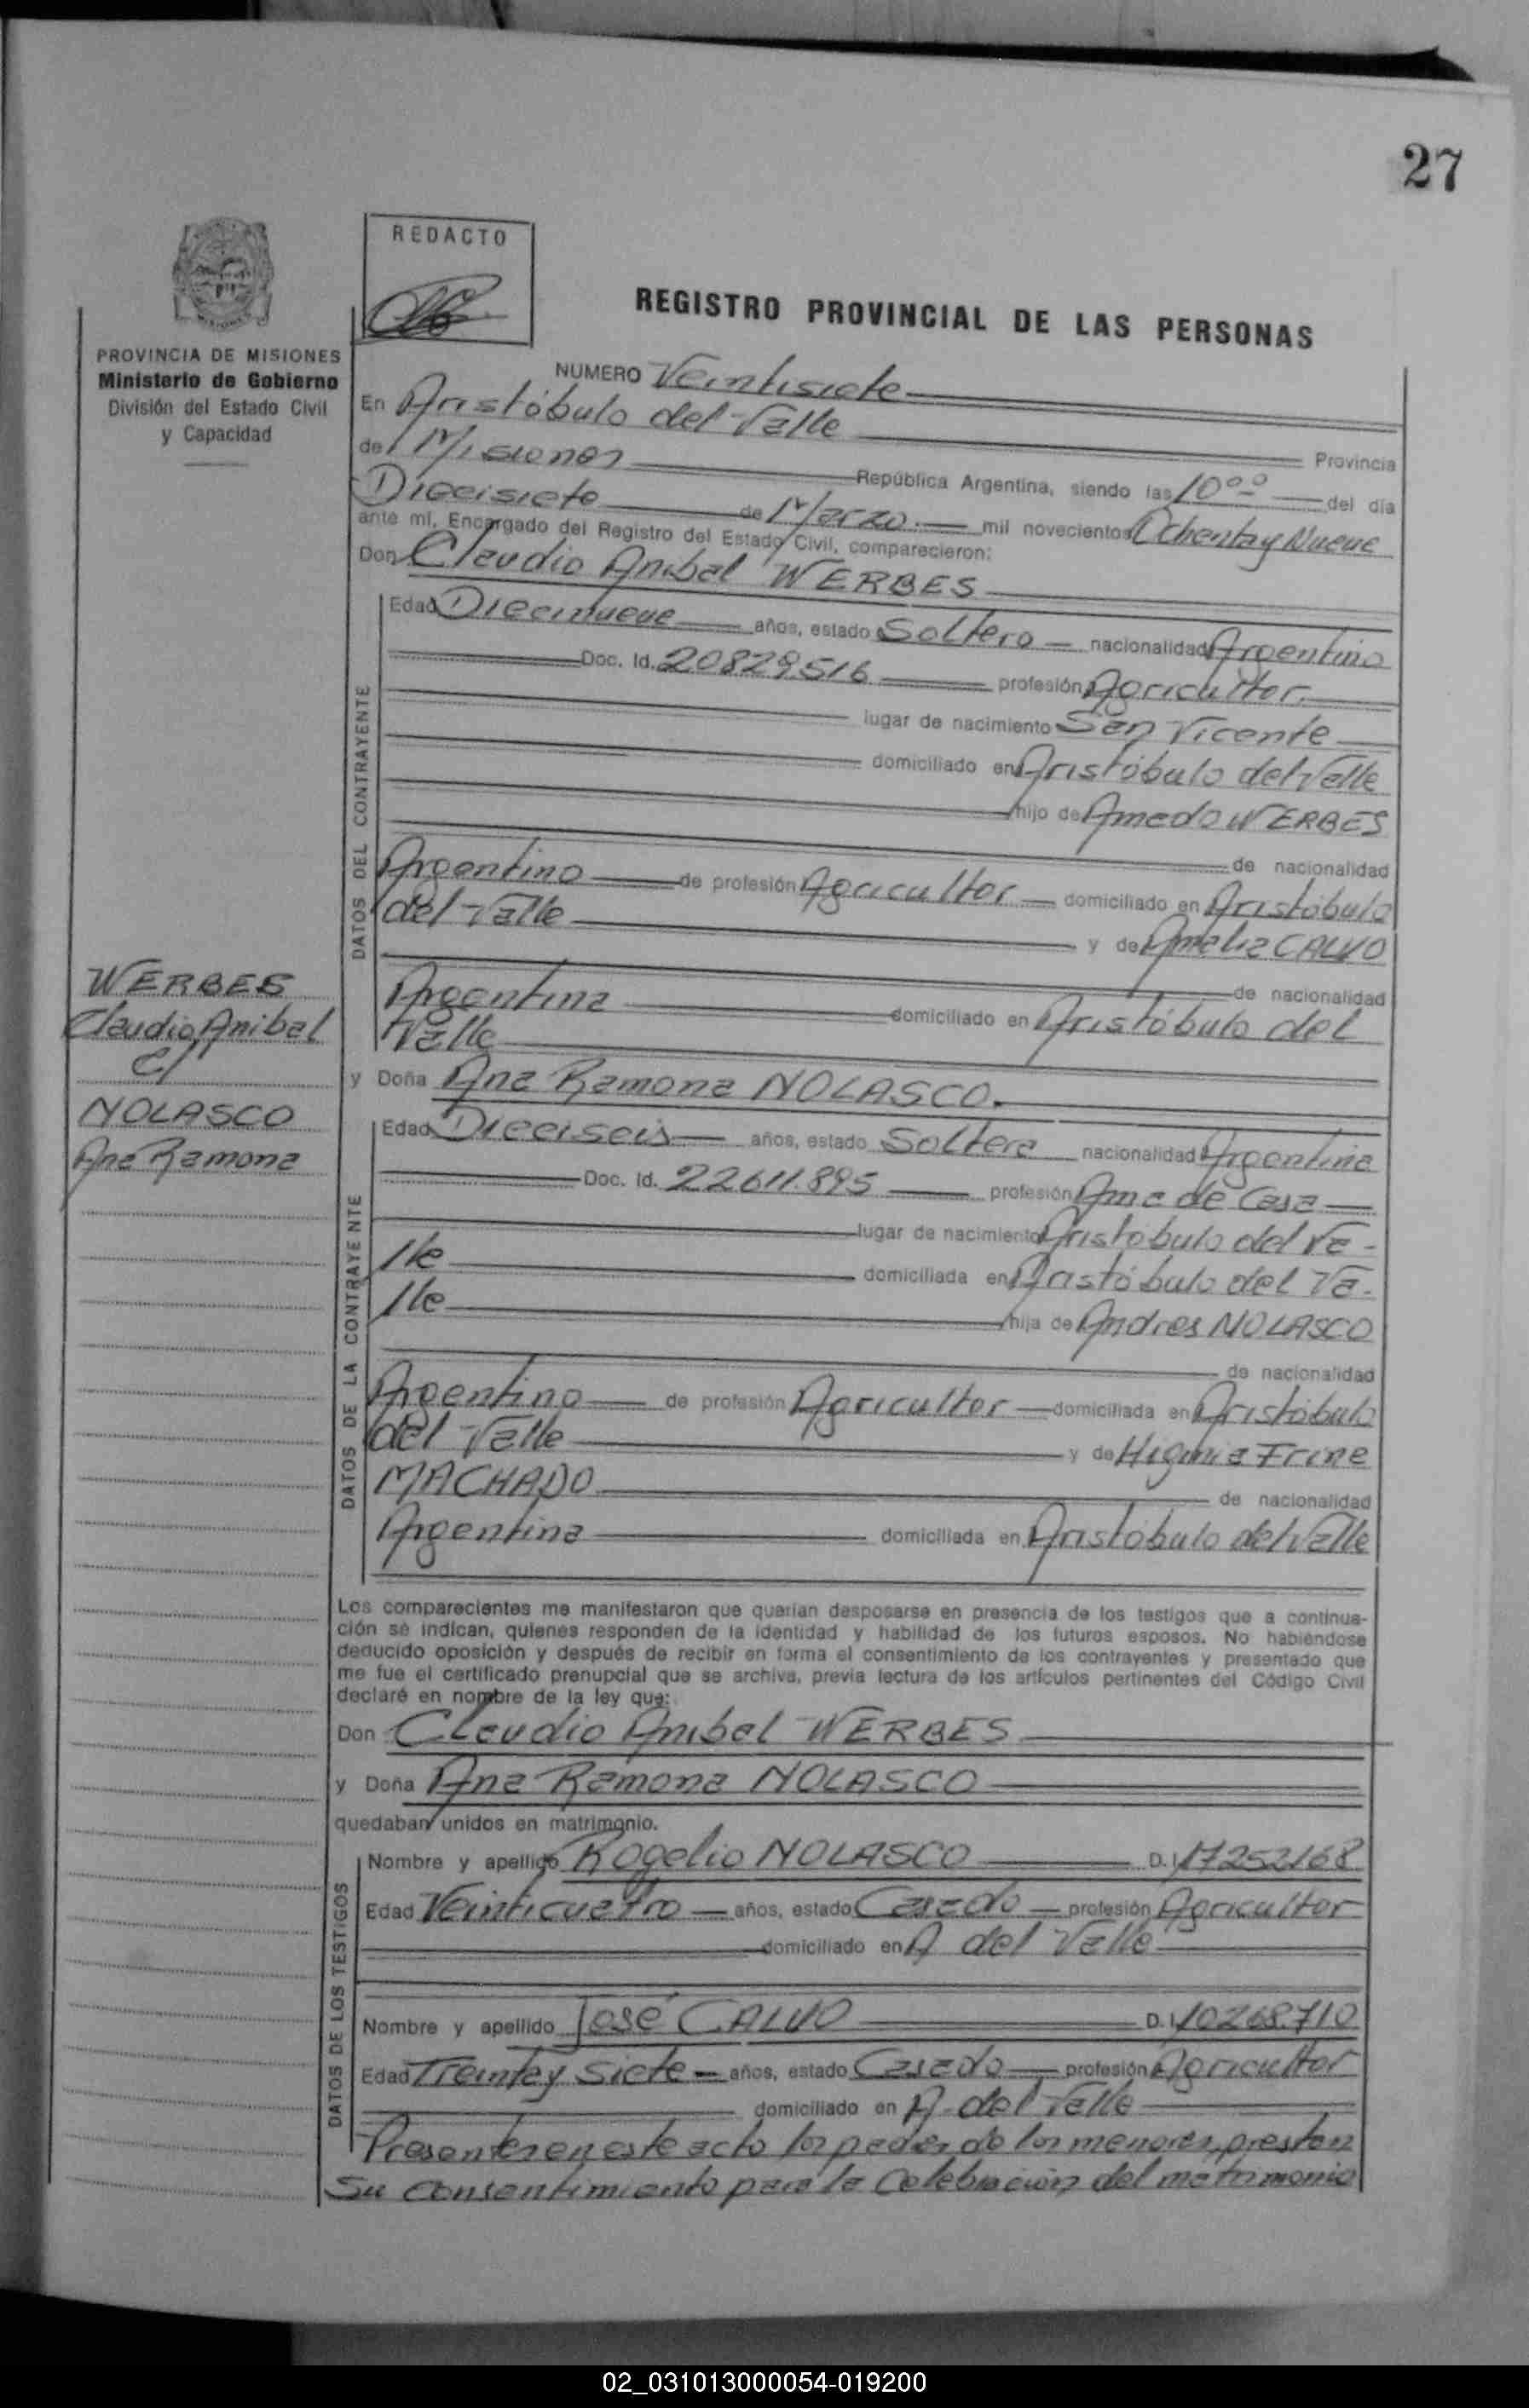 27
REDACTO
REGISTRO PROVINCIAL DE LAS PERSONAS
PROVINCIA DE MISIONES
Ministerio de Gobierno
División del Estado Civil
y Capacidad
NUMERO Veintisiete
En Aristóbulo del Valle Provincia
de Misiones República Argentina, siendo las 10⁰⁰ del día
Diecisiete de Marzo mil novecientos Ochenta y Nueve
ante mí, Encargado del Registro del Estado Civil, comparecieron:
Don Claudio Anibal WERBES
DATOS DEL CONTRAYENTE
Edad Diecinueve años, estado Soltero nacionalidad Argentino
Doc. Id. 20829516 profesión Agricultor
lugar de nacimiento San Vicente
domiciliado en Aristóbulo del Valle
hijo de Amedo WERBES
de nacionalidad
Argentino de profesión Agricultor domiciliado en Aristóbulo
del Valle y de Amelia CALVO
de nacionalidad
Argentina domiciliado en Aristóbulo del
Valle
WERBES
Claudio Anibal
c/
NOLASCO
Ana Ramona
y Doña Ana Ramona NOLASCO.
DATOS DE LA CONTRAYENTE
Edad Dieciseis años, estado Soltera nacionalidad Argentina
Doc. Id. 22611.895 profesión Ama de Casa
lugar de nacimiento Aristóbulo del Va-
lle domiciliada en Aristóbulo del Va-
lle hija de Andres NOLASCO
de nacionalidad
Argentino de profesión Agricultor domiciliada en Aristóbulo
del Valle y de Higinia Irine
MACHADO de nacionalidad
Argentina domiciliada en Aristóbulo del Valle
Los comparecientes me manifestaron que querían desposarse en presencia de los testigos que a continua-
ción se indican, quienes responden de la identidad y habilidad de los futuros esposos. No habiéndose
deducido oposición y después de recibir en forma el consentimiento de los contrayentes y presentado que
me fue el certificado prenupcial que se archiva, previa lectura de los artículos pertinentes del Código Civil
declaré en nombre de la ley que:
Don Claudio Anibal WERBES
y Doña Ana Ramona NOLASCO
quedaban unidos en matrimonio.
DATOS DE LOS TESTIGOS
Nombre y apellido Rogelio NOLASCO D.I. 17252168
Edad Veinticuatro años, estado Casado profesión Agricultor
domiciliado en A del Valle
Nombre y apellido José CALVO D.I. 10268.710
Edad Treinta y Siete años, estado Casado profesión Agricultor
domiciliado en A. del Valle
Presentes en este acto los padres de los menores, prestan
Su consentimiento para la Celebración del matrimonio
02_031013000054-019200